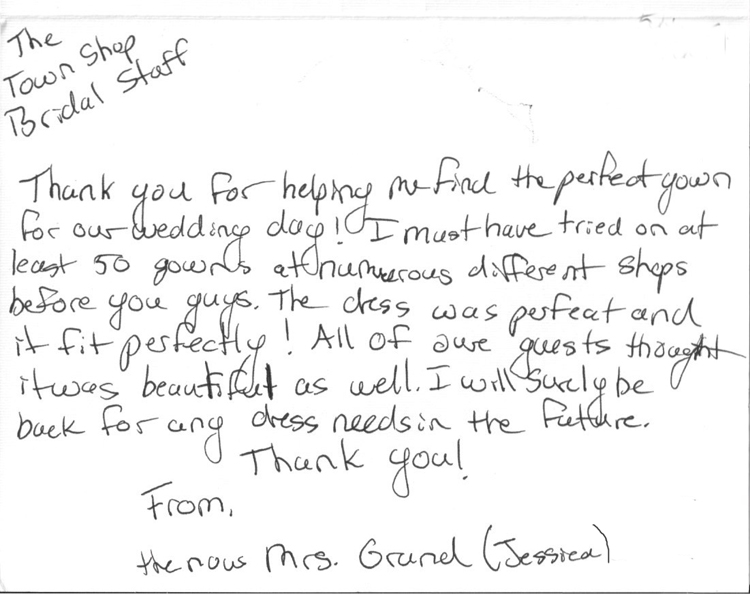 The
Town Shop
Bridal Staff
Thank you for helping me find the perfect gown
for our wedding day! I must have tried on at
least 50 gowns at numerous different shops
before you guys. The dress was perfect and
it fit perfectly! All of our guests thought
it was beautiful as well. I will surely be
back for any dress needs in the future.
Thank you!
From,
the now Mrs. Grand (Jessica)